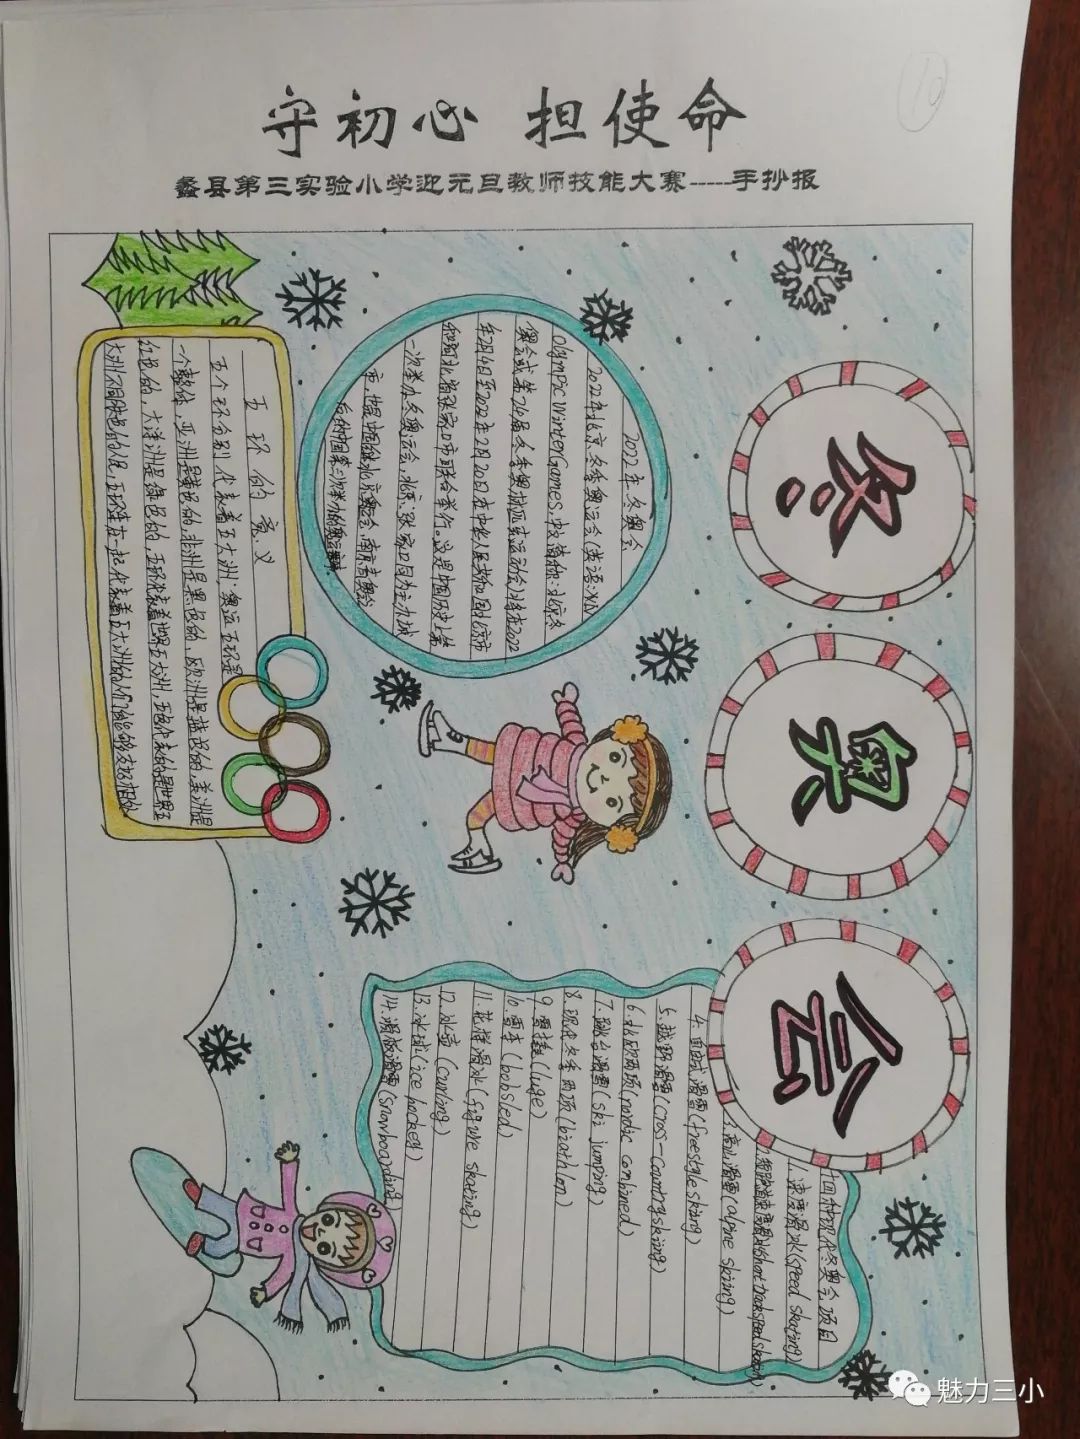 守初心 担使命
蠡县第三实验小学迎元旦教师技能大赛-----手抄报
10
冬
奥
会
2022年冬奥会
2022年北京冬季奥运会(英语:XXIV
Olympic Winter Games,中文简称:北京冬
奥会或第24届冬季奥林匹克运动会)将在2022
年2月4日至2022年2月20日在中华人民共和国北京市
和河北省张家口市联合举行。这是中国历史上第
一次举办冬奥运会,北京、张家口同为主办城
市,也是中国继北京奥运会,南京青奥会
后的中国第三次举办的奥运赛事。
五环的意义
五个环分别代表着五大洲;奥运五环是
一个整体,亚洲是黄色的,非洲是黑色的,欧洲是蓝色的,美洲是
红色的,大洋洲是绿色的,五环代表着世界五大洲,五色代表的是世界五
大洲不同肤色的人民,五环连在一起代表着五大洲的人们能够友好相处
十四种现代冬奥会项目
1.速度滑冰(speed skating)
2.短跑道速度滑冰(short track speed skating)
3.高山滑雪(alpine skiing)
4.自由式滑雪(freestyle skiing)
5.越野滑雪(cross-country skiing)
6.北欧两项(nordic combined)
7.跳台滑雪(ski jumping)
8.现代冬季两项(biathlon)
9.雪橇(luge)
10.雪车(bobsled)
11.花样滑冰(figure skating)
12.冰壶(curling)
13.冰球(ice hockey)
14.滑板滑雪(snowboarding)
魅力三小